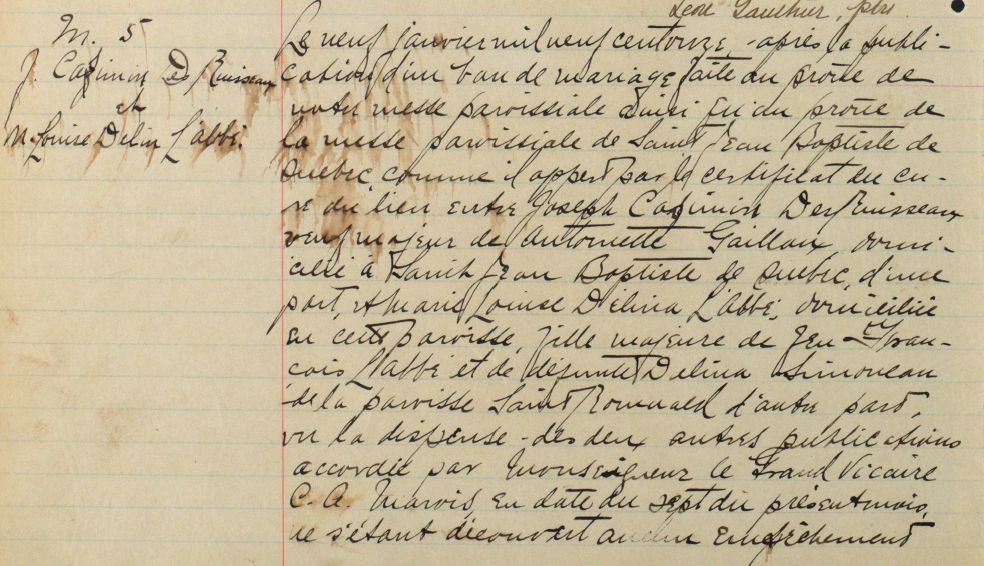 Léon Gauthier, ptre
M. 5
J. Casimir Des Ruisseaux
et
M. Louise Délina L'abbé.
Le neuf janvier mil neuf cent onze, après la publi-
cation d'un ban de mariage faite au prône de
notre messe paroissiale ainsi qu'au prône de
la messe paroissiale de Saint Jean Baptiste de
Québec, comme il appert par le certificat du cu-
ré du lieu entre Joseph Casimir Des Ruisseaux
veuf majeur de Antoinette Gaillou, domi-
cilié à Saint Jean Baptiste de Québec, d'une
part, et Marie Louise Délina L'abbé, domiciliée
en cette paroisse, fille majeure de feu Fran-
çois L'abbé et de défunte Délina Simoneau
de la paroisse Saint Romuald d'autre part,
vu la dispense des deux autres publications
accordée par Monseigneur le Grand Vicaire
C. A. Marois, en date du sept du présent mois,
ne s'étant découvert aucun empêchement